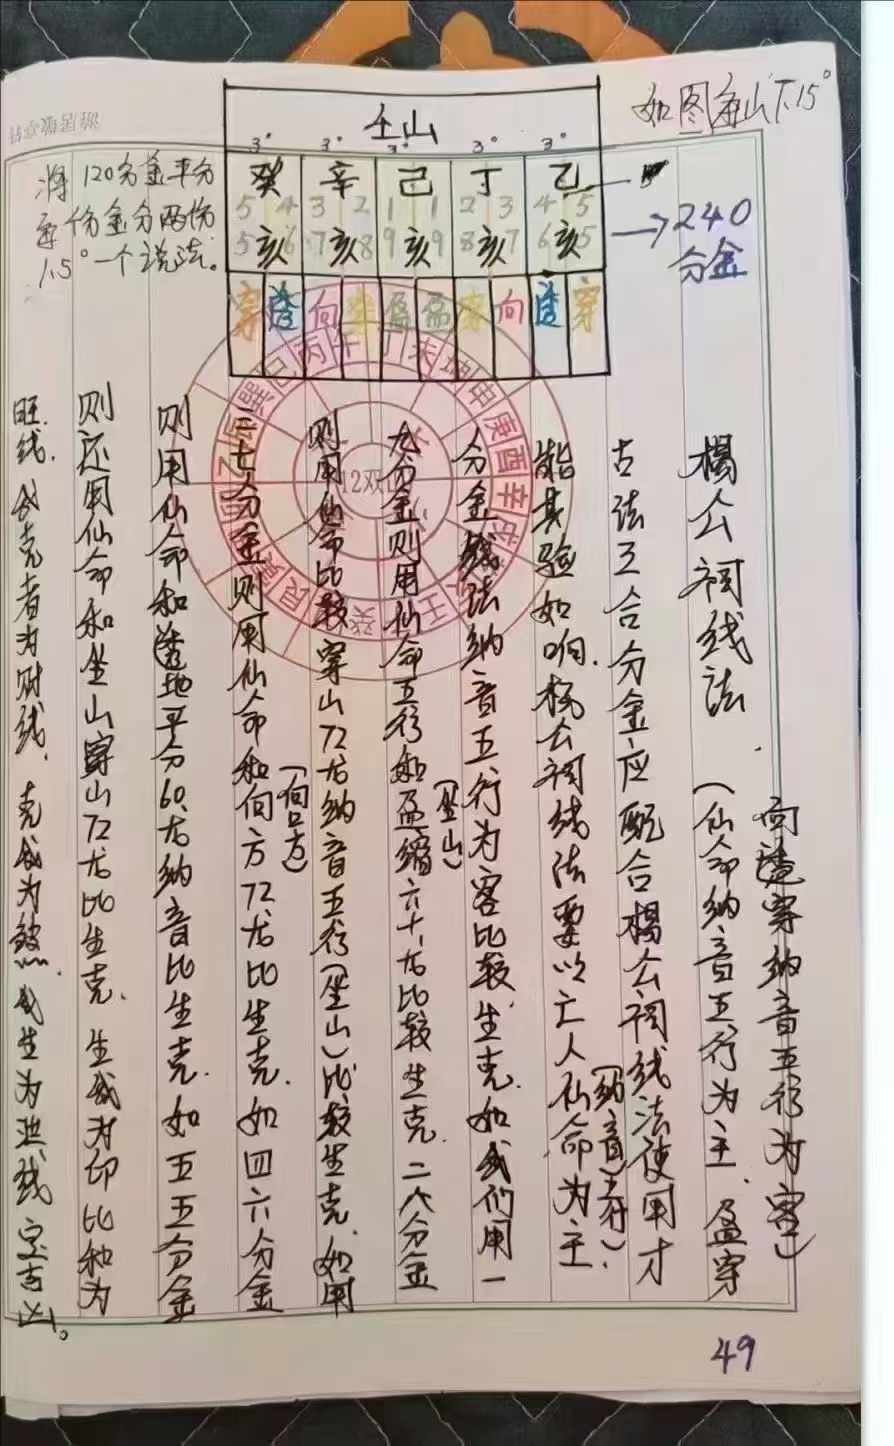 如图每山15°
壬山
3° 3° 3° 3° 3°
癸 辛 己 丁 乙
5 4 3 2 1 1 2 3 4 5
5 6 7 8 9 9 8 7 6 5
亥 亥 亥 亥 亥
穿 透 向 穿 盈 盈 穿 向 透 穿
→240
分金
将120分金平分
每份金分两份
1.5°一个说法。
杨公祠线法 (仙命纳音五行为主、盈穿
向透穿纳音五行为客)
古法五合分金应配合杨公祠线法使用才
能其验如响.杨公祠线法要以亡人仙命为主
(纳音五行).
分金线法纳音五行为客比较生克.如我们用一
九分金则用仙命五行和盈缩六十龙比较生克.二八分金
(坐山)
则用仙命比较穿山72龙纳音五行(坐山)比较生克.如用
三七分金则用仙命和向方72龙比生克.如四六分金
(向口方)
则用仙命和透地平分60龙纳音比生克.如五五分金
则还用仙命和坐山穿山72龙比生克.生我为印比和为
旺线.我克者为财线.克我为煞.我生为泄线定吉凶。
12双山
巽巳丙午丁未坤申庚酉辛戌
壬
癸
艮
乙
49